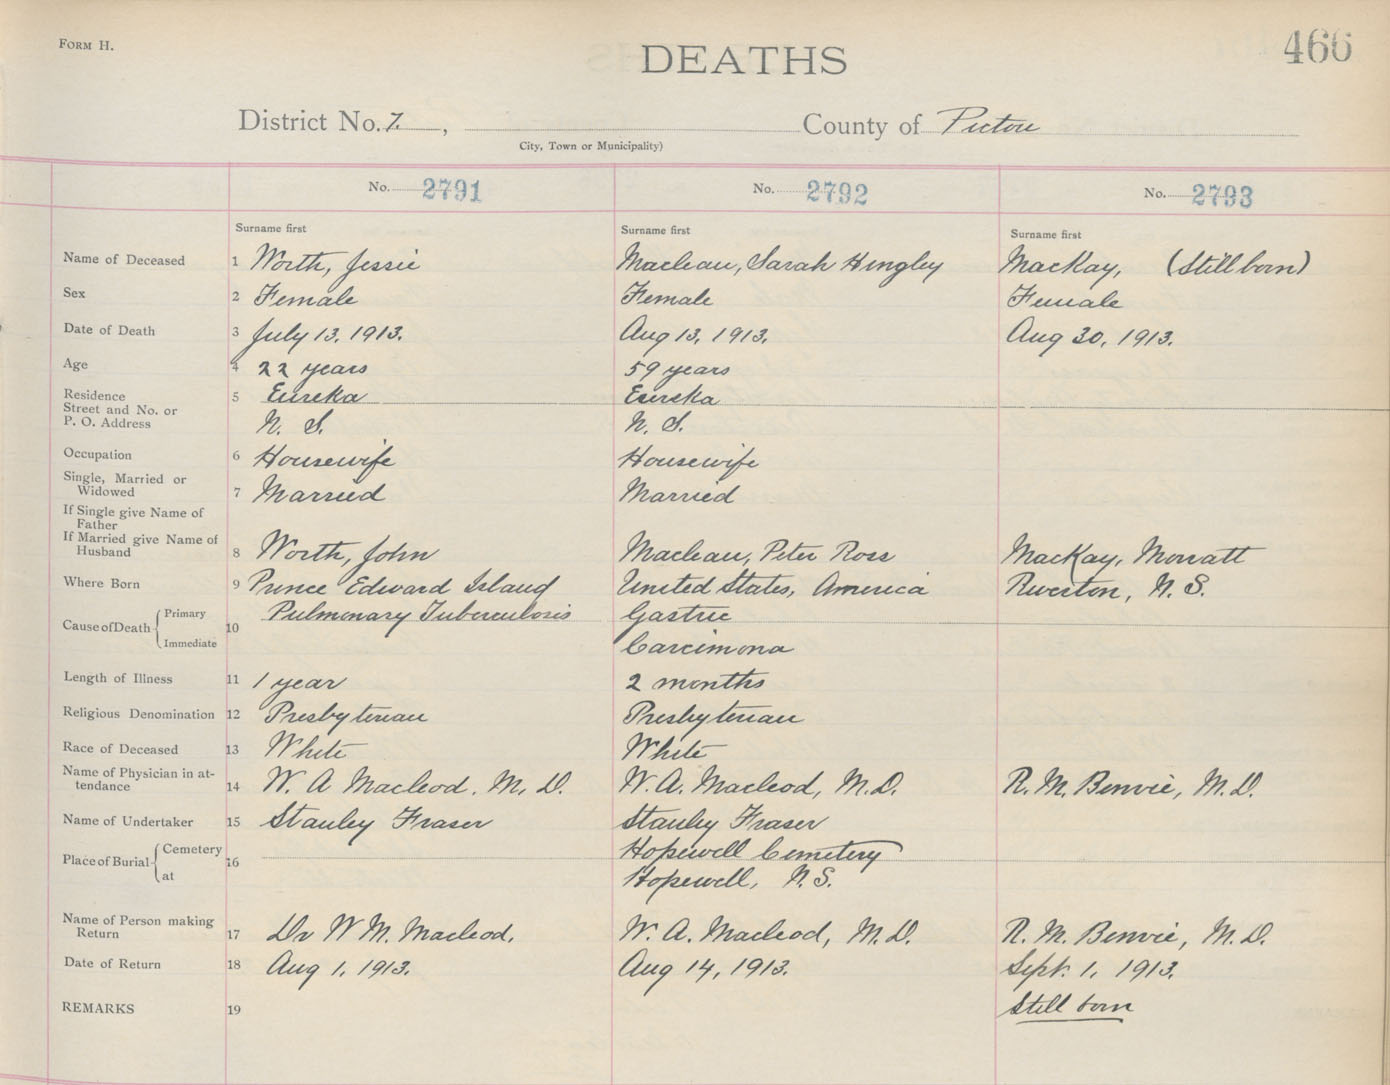 FORM H.
466
DEATHS
District No. 7. , County of Pictou
City, Town or Municipality)
No. 2791 No. 2792 No. 2793
Surname first Surname first Surname first
Name of Deceased 1 Worth, Jessie Macleau, Sarah Hingley MacKay, (Still born)
Sex 2 Female Female Female
Date of Death 3 July 13, 1913. Aug 13, 1913. Aug 30, 1913.
Age 4 22 years 59 years
Residence 5 Eureka Eureka
Street and No. or
P. O. Address N. S. N. S.
Occupation 6 Housewife Housewife
Single, Married or
Widowed 7 Married Married
If Single give Name of
Father
If Married give Name of
Husband 8 Worth, John Macleau, Peter Ross MacKay, Morratt
Where Born 9 Prince Edward Island United States, America Riverton, N. S.
Cause of Death Primary 10 Pulmonary Tuberculosis Gastric
Immediate Carcimona
Length of Illness 11 1 year 2 months
Religious Denomination 12 Presbyterian Presbyterian
Race of Deceased 13 White White
Name of Physician in at-
tendance 14 W. A Macleod. M. D. W. A. Macleod, M.D. R. M. Benvie, M.D.
Name of Undertaker 15 Stanley Fraser Stanley Fraser
Place of Burial Cemetery 16 Hopewell Cemetery
at Hopewell, N.S.
Name of Person making
Return 17 Dr W M. Macleod. W. A. Macleod, M.D. R. M. Benvie, M.D.
Date of Return 18 Aug 1, 1913. Aug 14, 1913. Sept. 1, 1913.
REMARKS 19 Still born